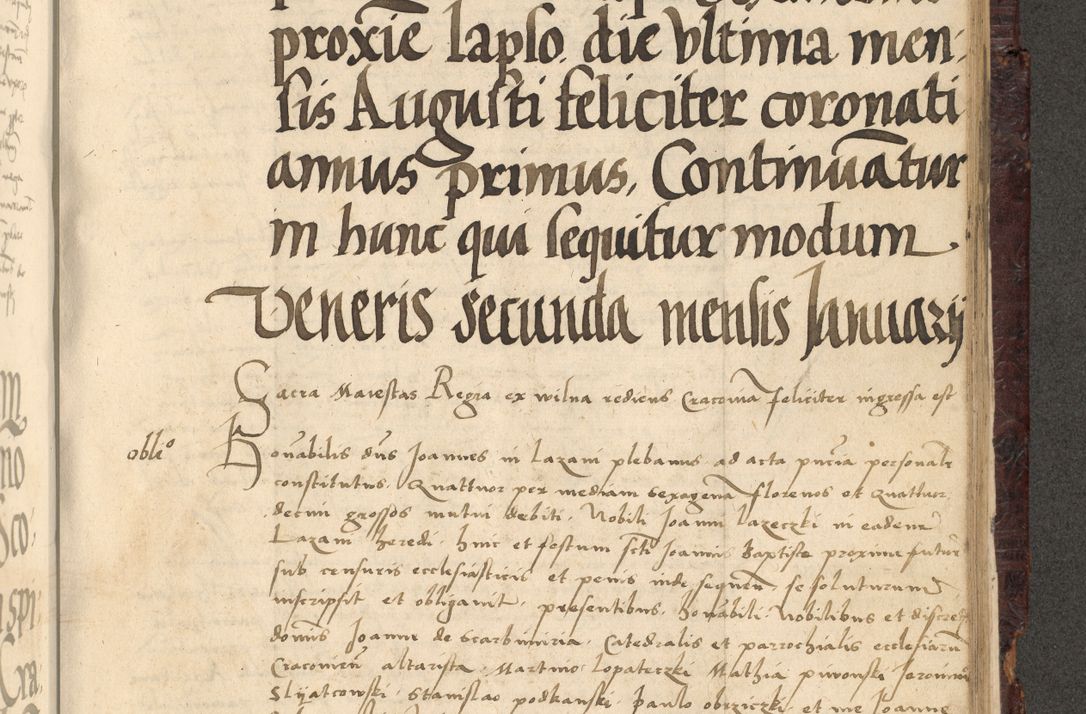 proxīe lapso die vltima men-
sis Augusti feliciter coronati
annus primus, Continuātur
in hunc qui sequitur modum.
Veneris secunda mensis Januarij
Sacra Maiestas Regia ex wilna rediens Cracoviā feliciter ingressa est
obliº
Honorabilis dn̄s Joannes in Lazani plebanus ad acta pn̄cia personalr
constitutus, Quattuor per mediam sexagenā florenos et Quattuor
decim grossos mutui debiti, Nobili Joanni Lazeczki in eadem
Lazani heredi, hinc et festum scti Joannis Baptiste proxime futur
sub censuris ecclesiasticis et penis inde sequen̄ se soluturum
inscripsit et obligavit, presentibus, honorabili, Nobilibus et discret
dominis Joanne de Scarbimiria, Catedralis et parrochialis ecclesiarū
Cracovien̄ altarista, Martino Lopateczki Mathia piwonski Jeronimo
Slijatcowski, Stanislao podkanski, Paulo obrziczki et me Joanne